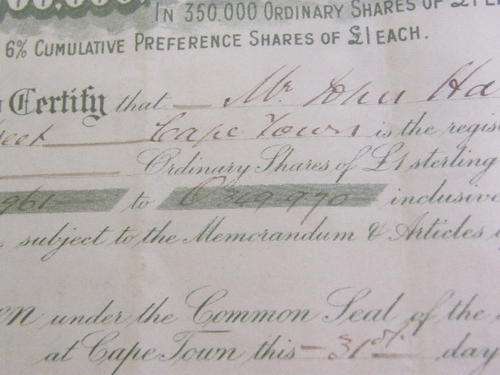 00.000.
IN 350.000 ORDINARY SHARES OF £1 E
6% CUMULATIVE PREFERENCE SHARES OF £1 EACH.
Certify that Mr John Ha
eet Cape Town is the regis
Ordinary Shares of £1 sterling
961 to 349,990 inclusive
subject to the Memorandum & Articles
en under the Common Seal of the
at Cape Town this 31st day